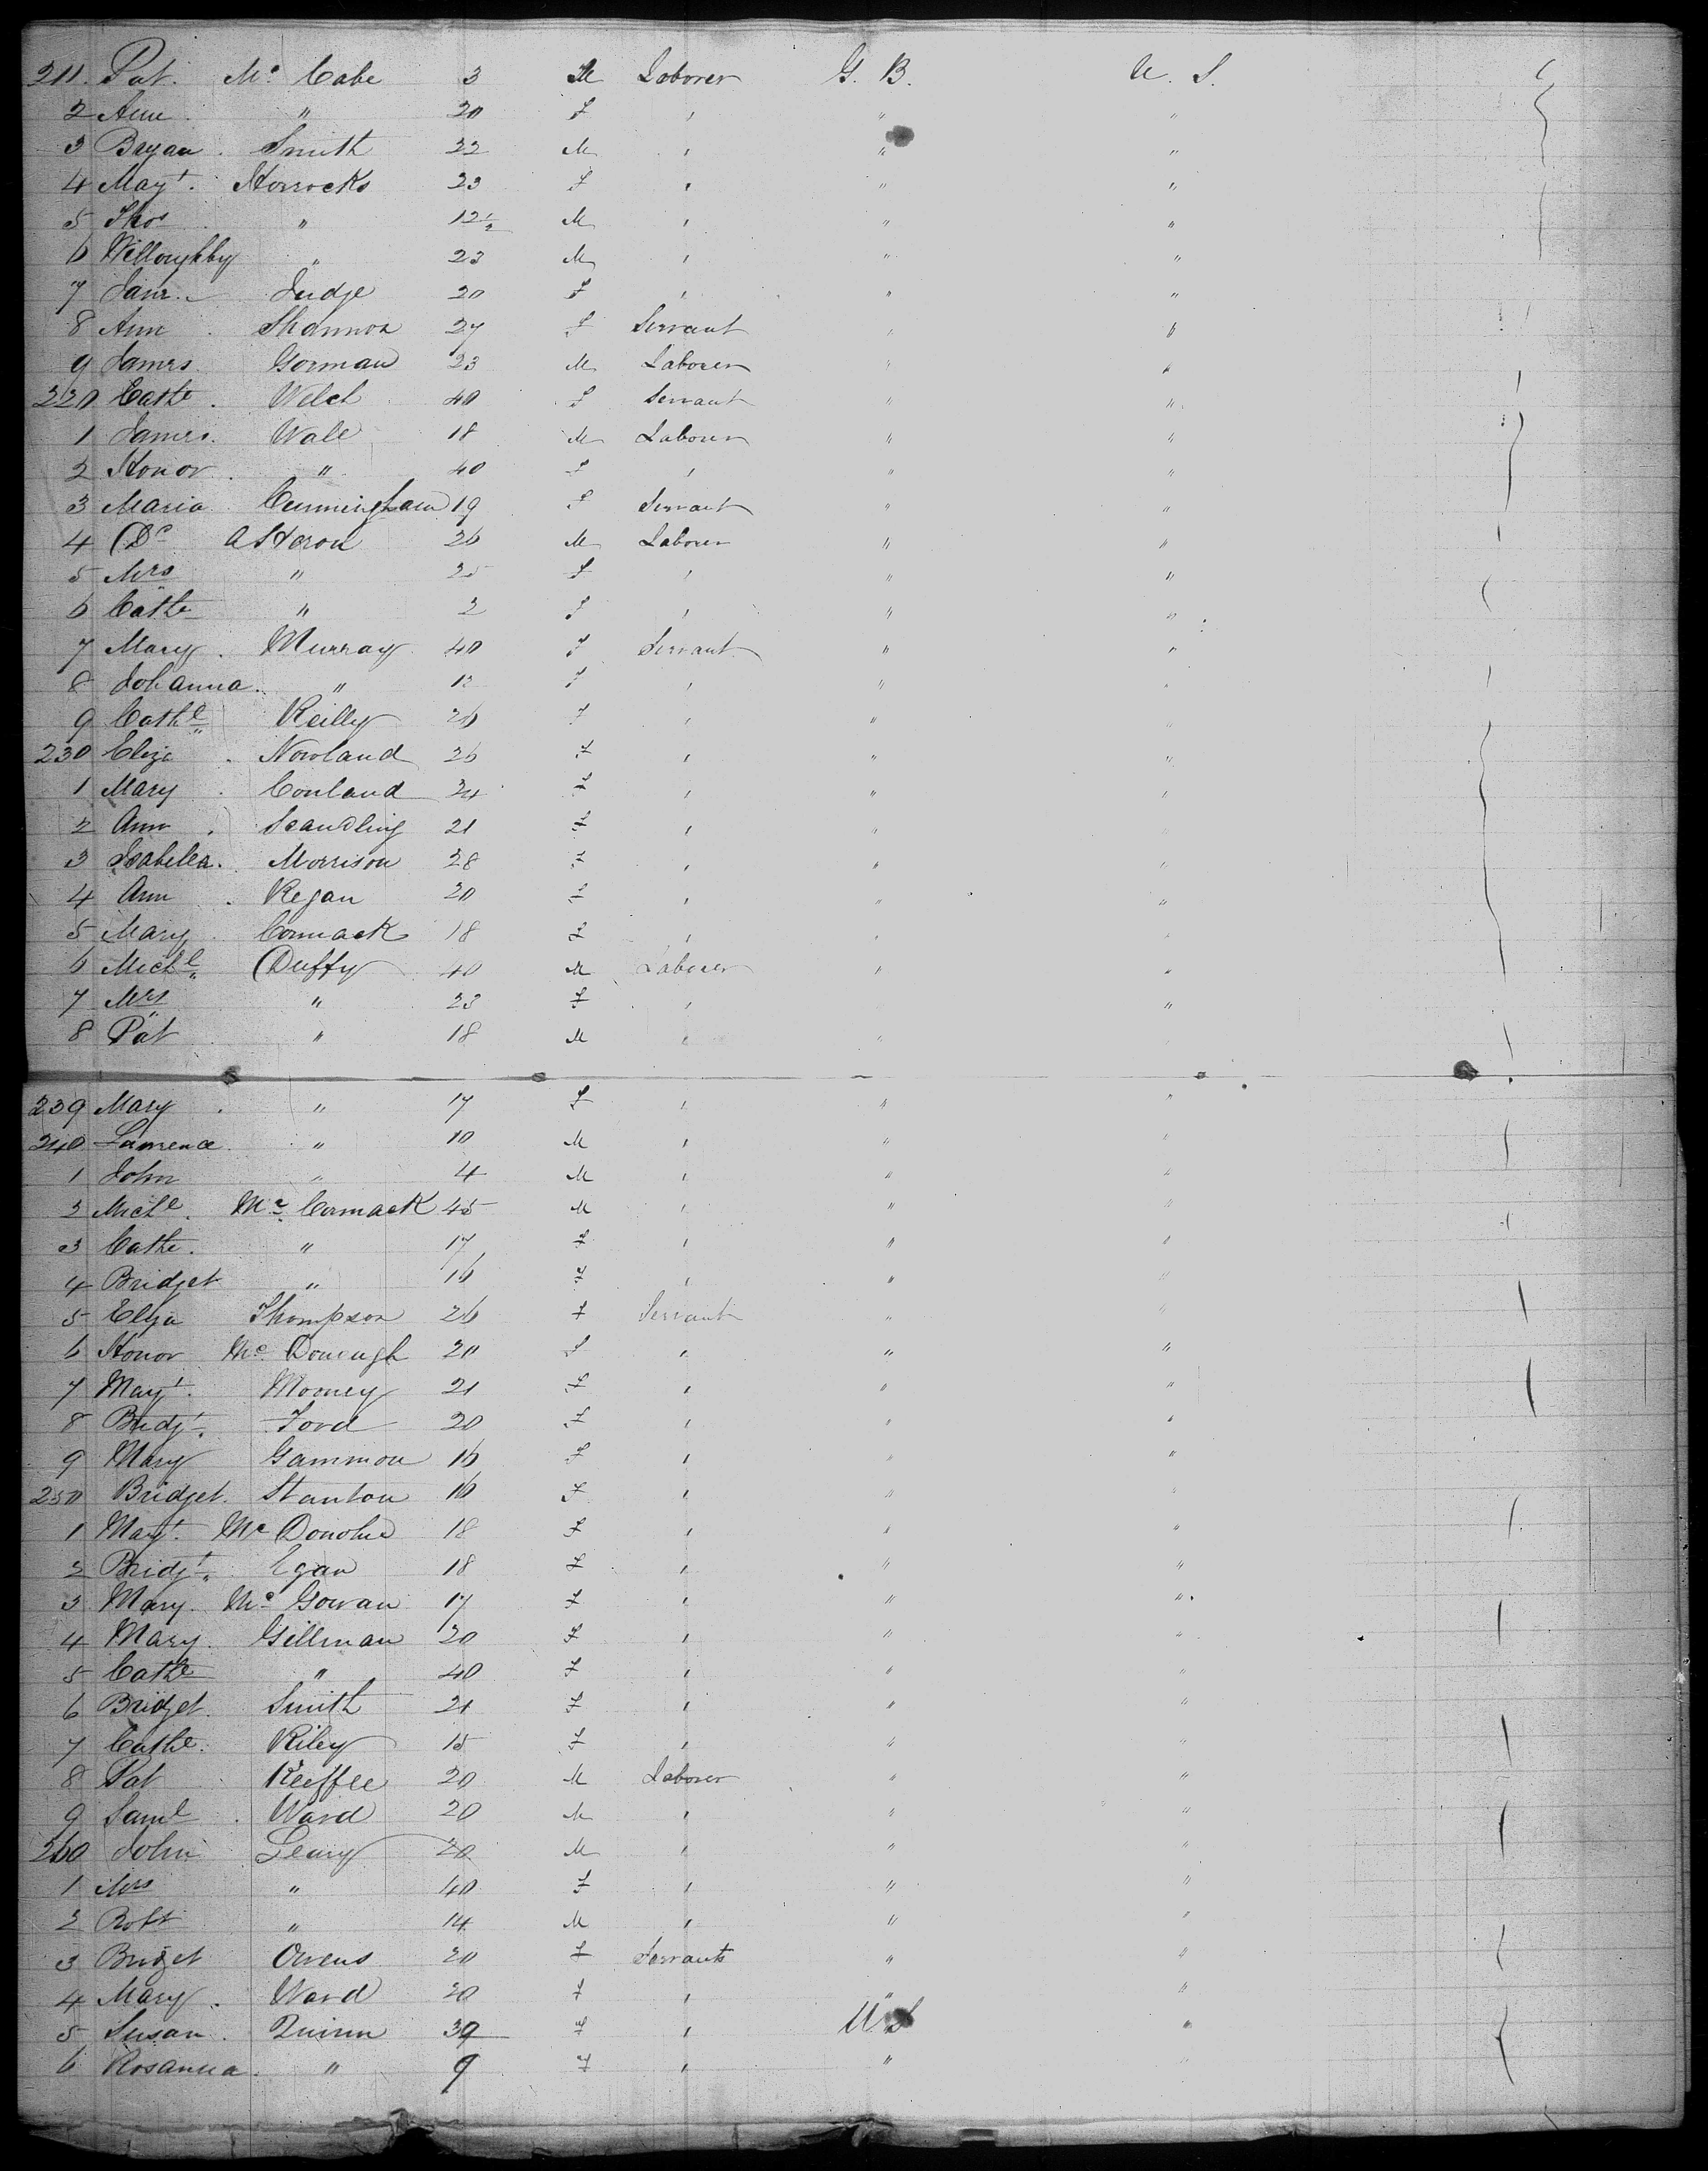 211. Pat. Mc Cabe 3 M Laborer G. B. U. S.
2 Ann " 20 f " " "
3 Bryan Smith 22 M " " "
4 Mayt. Horrocks 23 f " " "
5 Thos " 12 M " " "
6 Willoughby " 23 M " " "
7 Jane Judge 20 f " " "
8 Ann Shannon 27 f Servant " "
9 James Gorman 23 M Laborer " "
220 Cathe Welch 40 f Servant " "
1 James Wall 18 M Laborer " "
2 Honor " 40 f " " "
3 Maria Cunningham 19 f Servant " "
4 Dc AHeron 26 M Laborer " "
5 Mrs " 25 f " " "
6 Cathe " 2 f " " "
7 Mary Murray 40 f Servant " "
8 Johanna " 12 f " " "
9 Cathe Reilly 26 f " " "
230 Eliza Nowland 26 f " " "
1 Mary Conland 24 f " " "
2 Ann Scandling 21 f " " "
3 Isabella Morrison 28 f " " "
4 Ann Regan 20 f " " "
5 Mary Cormack 18 f " " "
6 Michl Duffy 40 M Laborer " "
7 Mrs " 23 f " " "
8 Pat " 18 M " " "
239 Mary " 17 f " " "
240 Lawrence " 10 M " " "
1 John " 4 M " " "
2 Michl. Mc Cormack 45 M " " "
3 Cathe. " 17 f " " "
4 Bridget " 16 f " " "
5 Eliza Thompson 26 f Servant " "
6 Honor Mc Donough 20 f " " "
7 Mayt. Mooney 21 f " " "
8 Bridgt. Ford 20 f " " "
9 Mary Gammon 16 f " " "
250 Bridget. Stanton 16 f " " "
1 Mayt. Mc Donohu 18 f " " "
2 Bridgt. Egan 18 f " " "
3 Mary Mc Gowan 17 f " " "
4 Mary Gillman 20 f " " "
5 Cathe " 40 f " " "
6 Bridget. Smith 21 f " " "
7 Cathe. Riley 15 f " " "
8 Pat Keeffee 20 M Laborer " "
9 Saml Ward 20 M " " "
260 John Leary 20 M " " "
1 Mrs " 40 f " " "
2 Robt " 14 M " " "
3 Bridget Owens 20 f Servants " "
4 Mary Ward 20 f " " "
5 Susan Quinn 39 f " U S "
6 Rosanna " 9 f " " "